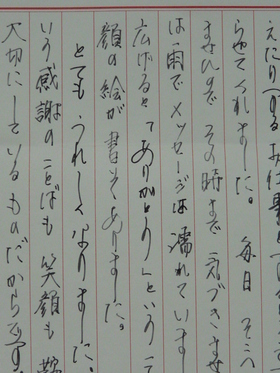 えたりするお仕事
らせてくれました。毎日そこへ
ませんので その時まで気づきませ
は雨でメッセージは濡れています
広げると「ありがとう」という
顔の絵が書いてありました。
とてもうれしくなりました、
いう感謝のことばも笑顔も
大切にしているものだからです